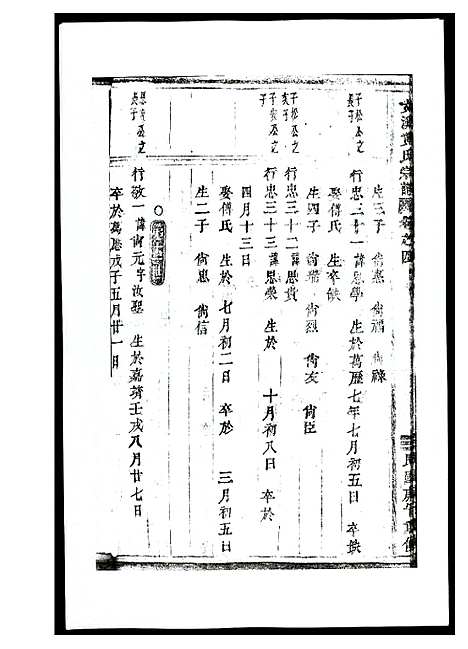 氏宗譜 卷之四
生三子 尙惠 尙福 尙祿
子松公之長子
行忠三十一 諱思學 生於萬歷七年七月初五日 卒缺
娶傅氏 生卒缺
生四子 尙烈 尙友 尙臣
子松公之次子
行忠三十二 諱思貴
子安公之子
行忠三十三 諱思榮 生於 十月初八日 卒於
四月十三日
娶傅氏 生於 七月初二日 卒於 三月初五日
生二子 尙忠 尙信
公之長子
行敬一 諱尙元 字汝聖 生於嘉靖壬戌八月廿七日
卒於萬歷戊子五月廿一日